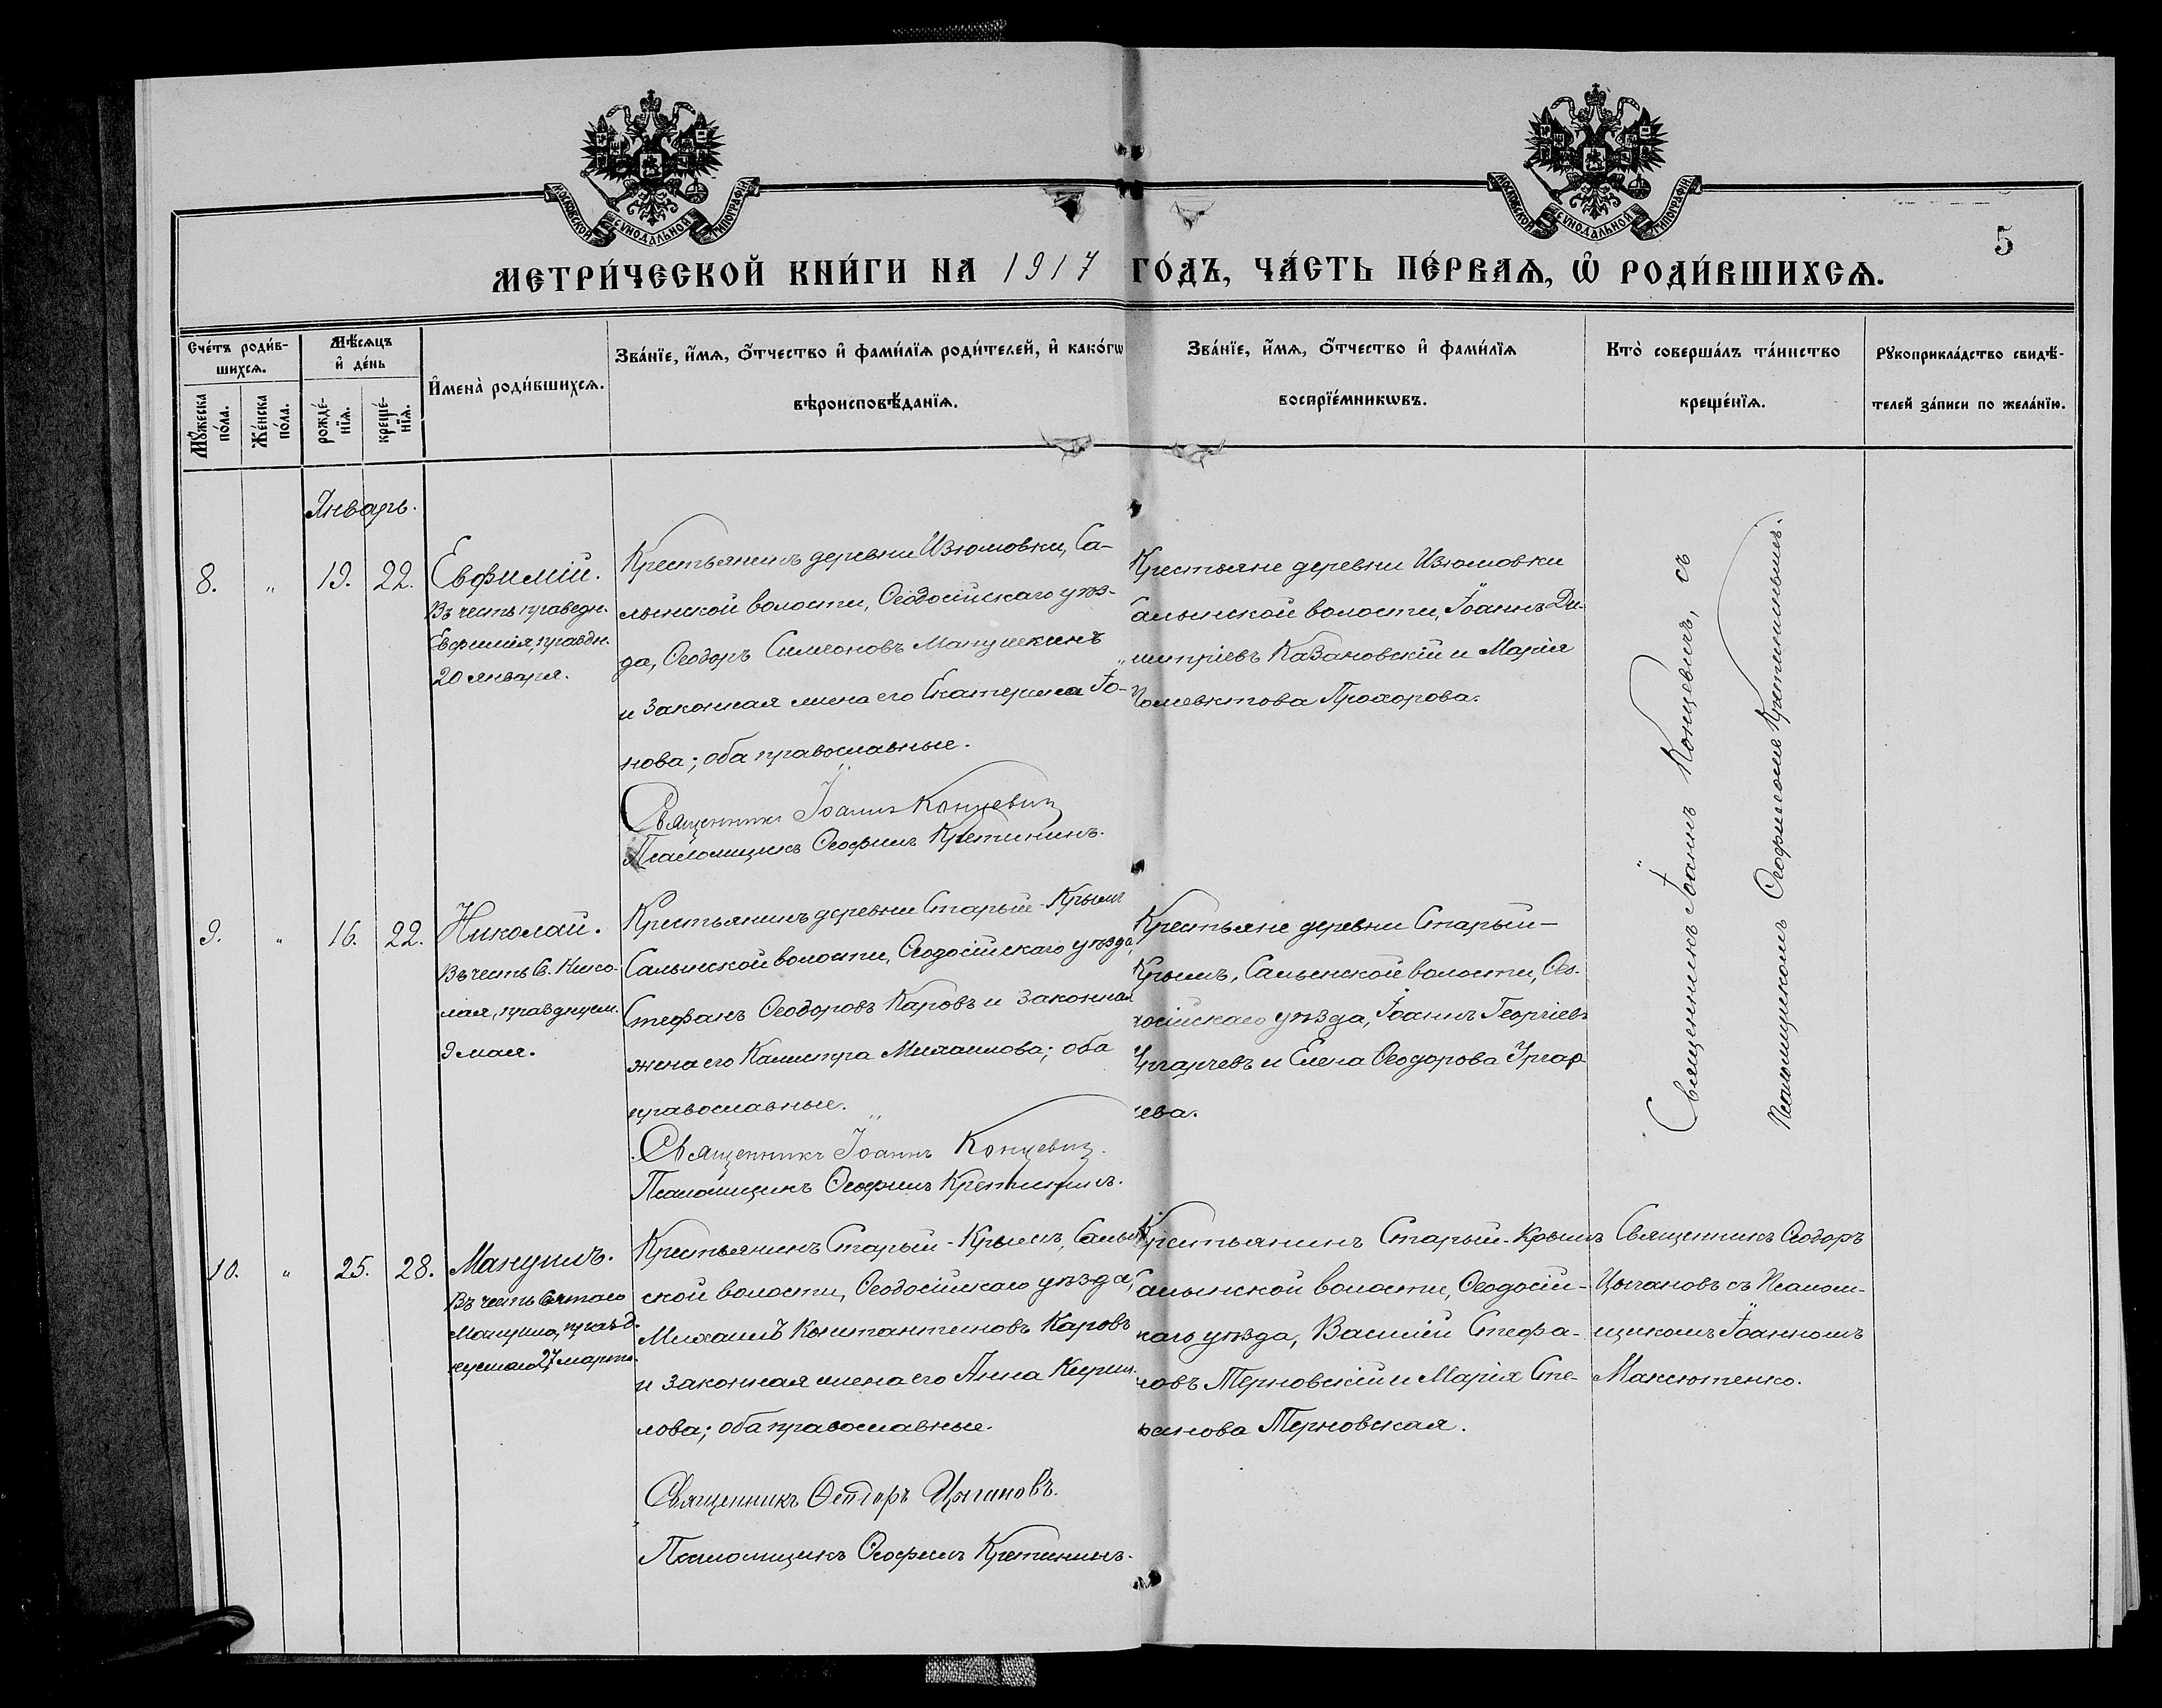 МОСКОВСКОЙ СѴНОДАЛЬНОЙ ТИПОГРАФІИ
МОСКОВСКОЙ СѴНОДАЛЬНОЙ ТИПОГРАФІИ
5
МЕТРИ́ЧЕСКОЙ КНИ́ГИ НА 1917 ГО́ДЪ, ЧА́СТЬ ПЕ́РВАѦ, Ѡ҆ РОДИ́ВШИХСѦ.
Сче́тъ роди́в-
шихсѧ.
Мꙋ́жеска
по́ла.
Же́нска
по́ла.
Мѣ́сѧцъ
и҆ де́нь
рожде́-
нїѧ.
креще́-
нїѧ.
И҆мена̀ роди́вшихсѧ.
Зва́нїе, и҆́мѧ, ѻ҆́тчество и҆ фами́лїѧ роди́телей, и҆ како́гѡ
вѣроисповѣ́данїѧ.
Зва́нїе, и҆́мѧ, ѻ҆́тчество и҆ фами́лїѧ
воспрїе́мникѡвъ.
Кто̀ соверша́лъ та́инство
креще́нїѧ.
Рꙋкоприкла́дство свидѣ́-
телей за́писи по жела́нїю.
Январь.
8.
"
19.
22.
Евфимій.
Въ честь праведн.
Евфимія, праздн.
20 января.
Крестьянинъ деревни Изюмовки, Са-
лынской волости, Ѳеодосійскаго уѣз-
да, Ѳеодоръ Симеоновъ Манушкинъ
и законная жена его Екатерина Іо-
нова; оба православные.
Священникъ Іоаннъ Концевич
Псаломщикъ Ѳеофилъ Кретининъ.
Крестьяне деревни Изюмовки
Салынской волости, Іоаннъ Ди-
митріевъ Казановскій и Марія
Полиевктова Прохорова.
Священникъ Іоаннъ Концевичъ, съ
псаломщикомъ Ѳеофиломъ Кретининымъ.
9.
"
16.
22.
Николай.
Въ честь Св. Нико-
лая, празднуем.
9 мая.
Крестьянинъ деревни Старый-Крымъ
Салынской волости, Ѳеодосійскаго уѣзда,
Стефанъ Ѳеодоровъ Каровъ и законная
жена его Михаилова; оба
православные.
Священникъ Іоаннъ Концевич.
Псаломщикъ Ѳеофилъ Кретининъ.
Крестьяне деревни Старый-
Крымъ, Салынской волости, Ѳео-
досійскаго уѣзда, Іоаннъ Георгіевъ
и Елена Ѳеодорова
10.
"
25.
28.
Мануилъ.
Въ честь Святаго
Мануила, празд-
нуемаго 27 марта.
Крестьянинъ Старый-Крымъ, Салын-
ской волости, Ѳеодосійскаго уѣзда,
Михаилъ Константиновъ Каровъ
и законная жена его Анна Кирил-
лова; оба православные.
Священникъ Ѳеодоръ Цыгановъ.
Псаломщикъ Ѳеофилъ Кретининъ.
Крестьянинъ Старый-Крымъ
Салынской волости, Ѳеодосій-
скаго уѣзда, Василій Стефа-
новъ Терновскій и Марія Сте-
фанова Терновская.
Священникъ Ѳеодоръ
Цыгановъ съ псалом-
щикомъ Іоанномъ
Максютенко.